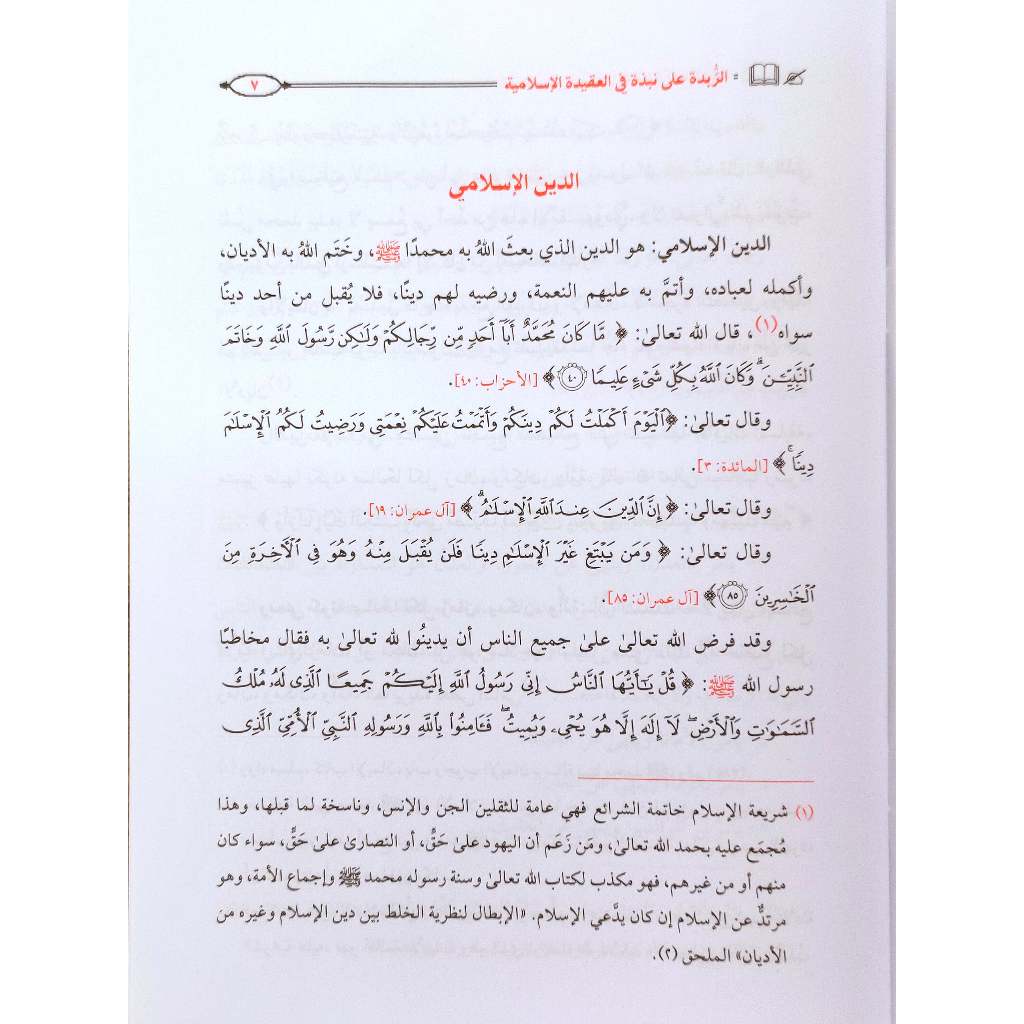 الزُّبدة على نبذة في العقيدة الإسلامية
٧
الدين الإسلامي
الدين الإسلامي: هو الدين الذي بعثَ اللهُ به محمدًا ﷺ، وخَتَم اللهُ به الأديان،
وأكمله لعباده، وأتمَّ به عليهم النعمة، ورضيه لهم دينًا، فلا يُقبل من أحد دينًا
سواه(١)، قال الله تعالىٰ: ﴿ مَّا كَانَ مُحَمَّدٌ أَبَآ أَحَدٍ مِّن رِّجَالِكُمْ وَلَٰكِن رَّسُولَ ٱللَّهِ وَخَاتَمَ
ٱلنَّبِيِّـۧنَ ۗ وَكَانَ ٱللَّهُ بِكُلِّ شَىْءٍ عَلِيمًا ٤٠ ﴾ [الأحزاب: ٤٠].
وقال تعالىٰ: ﴿ٱلْيَوْمَ أَكْمَلْتُ لَكُمْ دِينَكُمْ وَأَتْمَمْتُ عَلَيْكُمْ نِعْمَتِى وَرَضِيتُ لَكُمُ ٱلْإِسْلَٰمَ
دِينًا ۚ ﴾ [المائدة: ٣].
وقال تعالىٰ: ﴿ إِنَّ ٱلدِّينَ عِندَ ٱللَّهِ ٱلْإِسْلَٰمُ ۗ ﴾ [آل عمران: ١٩].
وقال تعالىٰ: ﴿ وَمَن يَبْتَغِ غَيْرَ ٱلْإِسْلَٰمِ دِينًا فَلَن يُقْبَلَ مِنْهُ وَهُوَ فِى ٱلْأَخِرَةِ مِنَ
ٱلْخَٰسِرِينَ ٨٥ ﴾ [آل عمران: ٨٥].
وقد فرض الله تعالىٰ علىٰ جميع الناس أن يدينُوا لله تعالىٰ به فقال مخاطبًا
رسول الله ﷺ: ﴿ قُلْ يَٰٓأَيُّهَا ٱلنَّاسُ إِنِّى رَسُولُ ٱللَّهِ إِلَيْكُمْ جَمِيعًا ٱلَّذِى لَهُۥ مُلْكُ
ٱلسَّمَٰوَٰتِ وَٱلْأَرْضِ ۖ لَآ إِلَٰهَ إِلَّا هُوَ يُحْىِۦ وَيُمِيتُ ۖ فَـَٔامِنُوا۟ بِٱللَّهِ وَرَسُولِهِ ٱلنَّبِىِّ ٱلْأُمِّىِّ ٱلَّذِى
(١) شريعة الإسلام خاتمة الشرائع فهي عامة للثقلين الجن والإنس، وناسخة لما قبلها، وهذا
مُجمَع عليه بحمد الله تعالىٰ، ومَن زَعَم أن اليهود علىٰ حَقٍّ، أو النصارىٰ علىٰ حَقٍّ، سواء كان
منهم أو من غيرهم، فهو مكذب لكتاب الله تعالىٰ وسنة رسوله محمد ﷺ وإجماع الأمة، وهو
مرتدٌّ عن الإسلام إن كان يدَّعي الإسلام. «الإبطال لنظرية الخلط بين دين الإسلام وغيره من
الأديان» الملحق (٢).